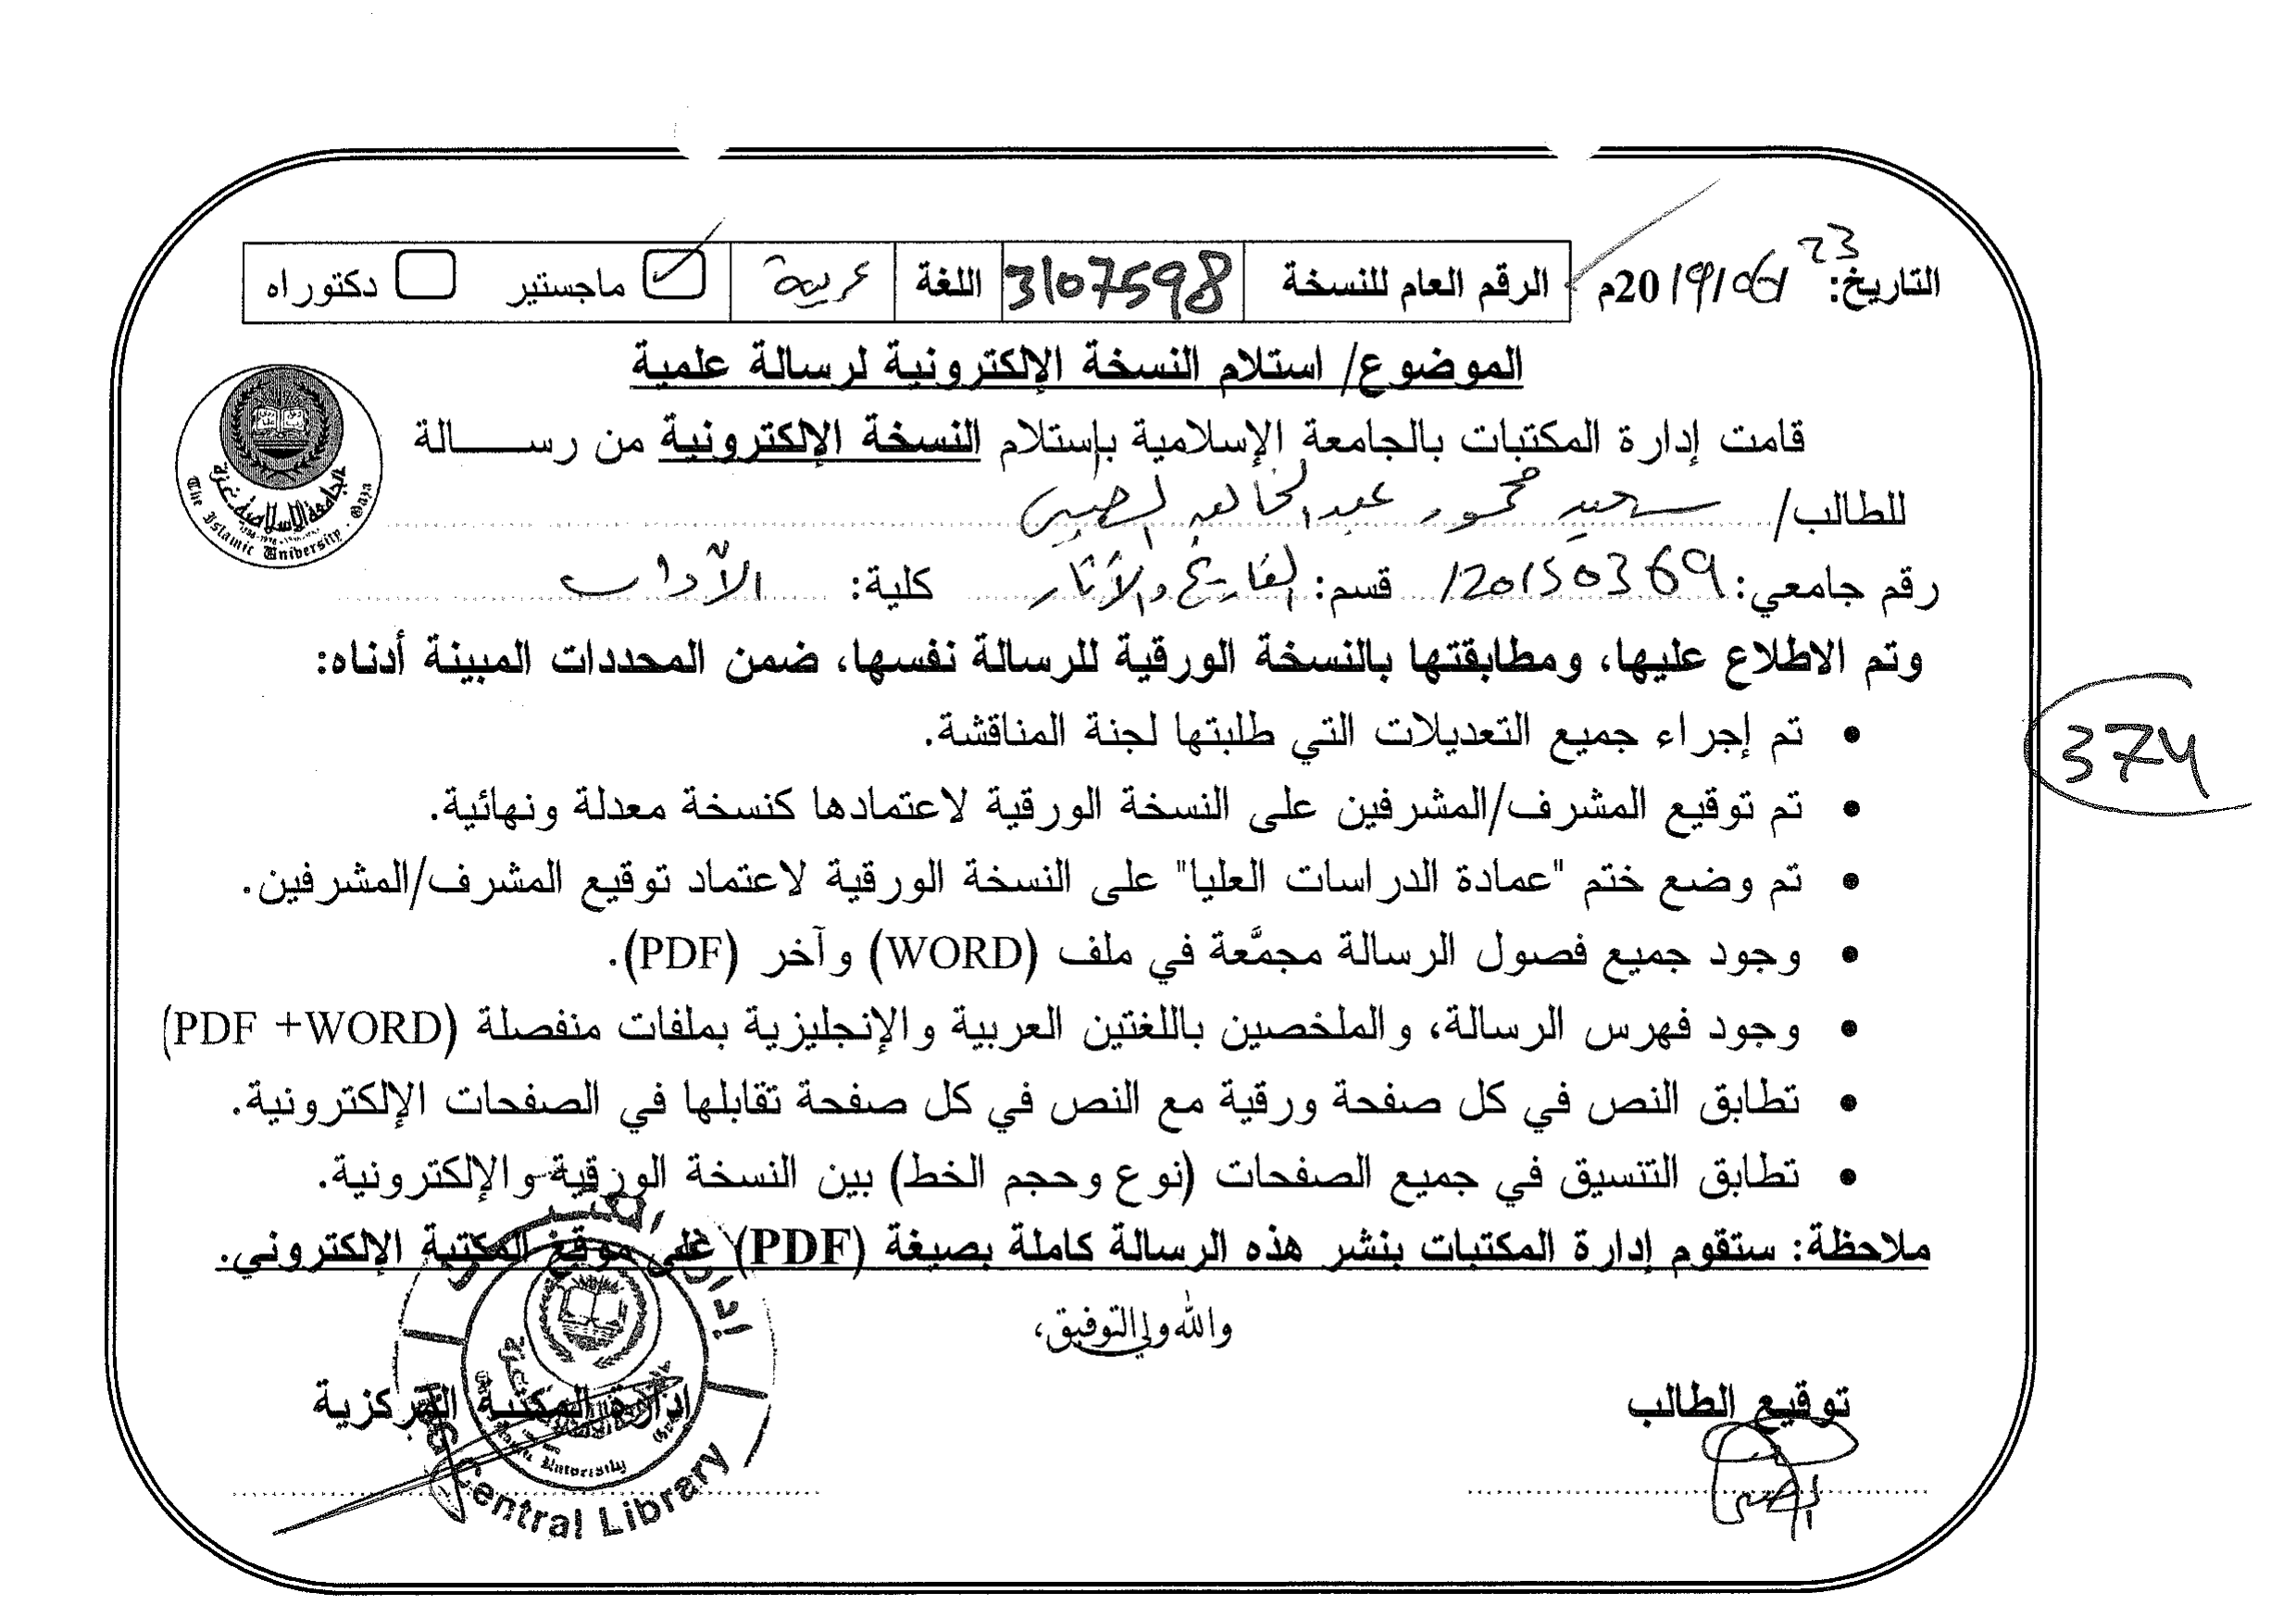 التاريخ: 23/06/2019م الرقم العام للنسخة 3107598 اللغة عربية ماجستير دكتوراه
الموضوع/ استلام النسخة الإلكترونية لرسالة علمية
قامت إدارة المكتبات بالجامعة الإسلامية بإستلام النسخة الإلكترونية من رســـالة
للطالب/ سعيد محمود عبد
رقم جامعي: 120150369 قسم: التاريخ والآثار كلية: الآداب
وتم الاطلاع عليها، ومطابقتها بالنسخة الورقية للرسالة نفسها، ضمن المحددات المبينة أدناه:
• تم إجراء جميع التعديلات التي طلبتها لجنة المناقشة.
374
• تم توقيع المشرف/المشرفين على النسخة الورقية لاعتمادها كنسخة معدلة ونهائية.
• تم وضع ختم "عمادة الدراسات العليا" على النسخة الورقية لاعتماد توقيع المشرف/المشرفين.
• وجود جميع فصول الرسالة مجمَّعة في ملف (WORD) وآخر (PDF).
• وجود فهرس الرسالة، والملخصين باللغتين العربية والإنجليزية بملفات منفصلة (PDF +WORD)
• تطابق النص في كل صفحة ورقية مع النص في كل صفحة تقابلها في الصفحات الإلكترونية.
• تطابق التنسيق في جميع الصفحات (نوع وحجم الخط) بين النسخة الورقية والإلكترونية.
ملاحظة: ستقوم إدارة المكتبات بنشر هذه الرسالة كاملة بصيغة (PDF) على موقع المكتبة الإلكتروني.
والله ولي التوفيق،
توقيع الطالب إدارة المكتبة المركزية
الجامعة الإسلامية غزة
The Islamic University · Gaza
Central Library